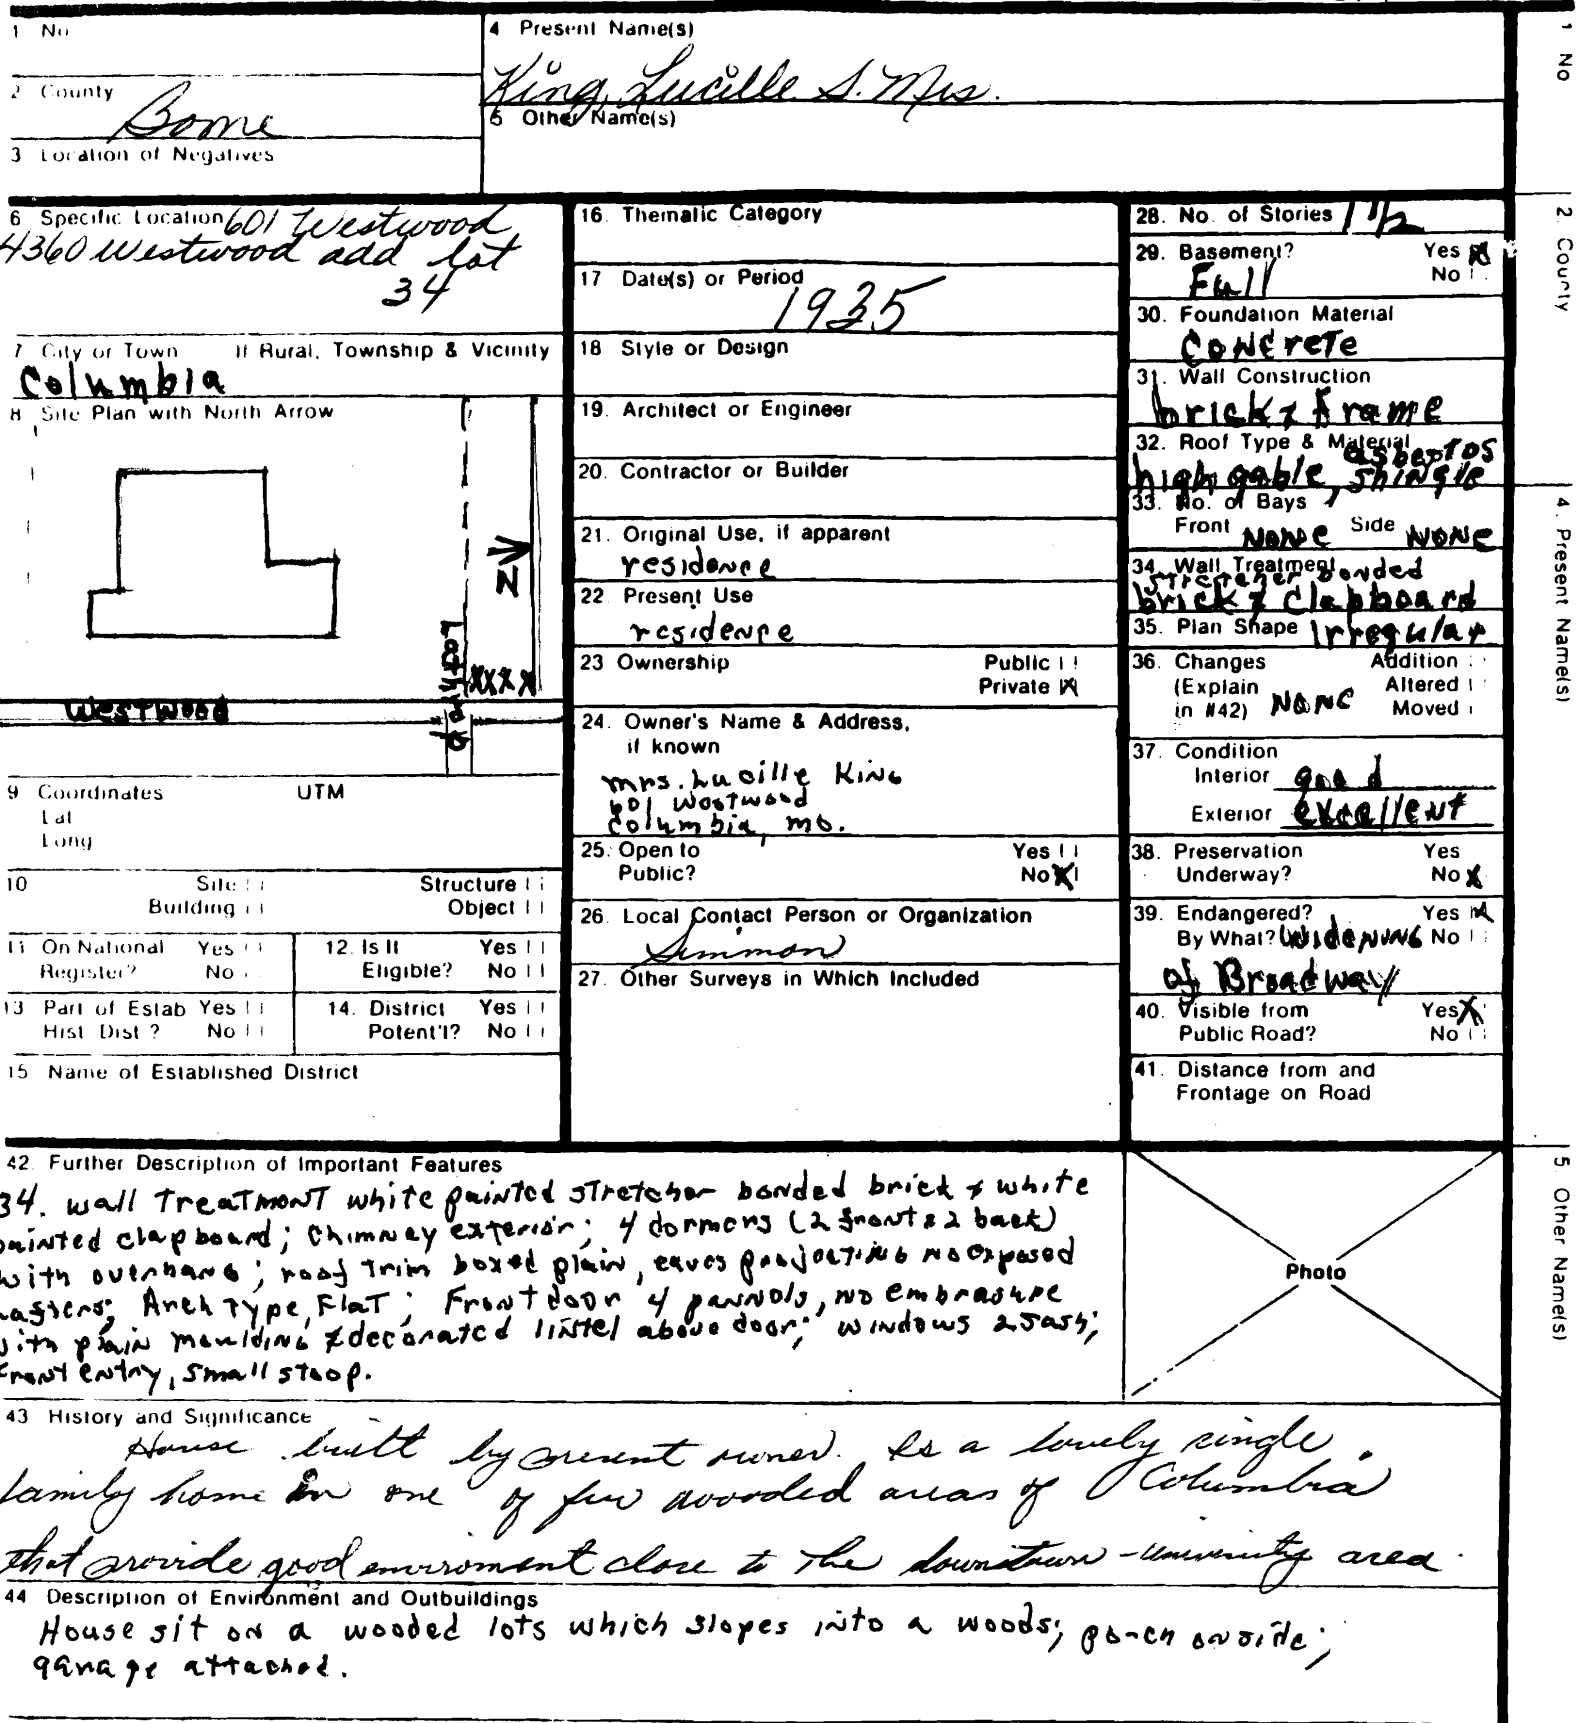 1 No.
4 Present Name(s)
King, Lucille S. Mrs.
2 County
Boone
5 Other Name(s)
3 Location of Negatives
6 Specific Location 601 Westwood
4360 Westwood add lot
34
7 City or Town If Rural, Township & Vicinity
Columbia
8 Site Plan with North Arrow
N
Westwood
Lathrop
XXXX
9 Coordinates UTM
Lat
Long
10 Site Structure
Building Object
11 On National Register? Yes No
12. Is It Eligible? Yes No
13 Part of Estab Hist Dist? Yes No
14. District Potent'l? Yes No
15 Name of Established District
16. Thematic Category
17 Date(s) or Period
1935
18 Style or Design
19. Architect or Engineer
20. Contractor or Builder
21. Original Use, if apparent
residence
22 Present Use
residence
23 Ownership Public
Private X
24. Owner's Name & Address,
if known
mrs. Lucille King
601 Westwood
Columbia, mo.
25. Open to Yes
Public? No X
26. Local Contact Person or Organization
Simmon
27. Other Surveys in Which Included
28. No. of Stories 1 1/2
29. Basement? Yes X
Full No
30. Foundation Material
concrete
31. Wall Construction
brick & frame
32. Roof Type & Material asbestos
high gable, shingle
33. No. of Bays
Front NONE Side NONE
34. Wall Treatment
stretcher bonded
brick & clapboard
35. Plan Shape Irregular
36. Changes Addition
(Explain Altered
in #42) NONE Moved
37. Condition
Interior good
Exterior excellent
38. Preservation Yes
Underway? No X
39. Endangered? Yes X
By What? widening No
of Broadway
40. Visible from Yes X
Public Road? No
41. Distance from and
Frontage on Road
42. Further Description of Important Features
34. wall treatment white painted stretcher bonded brick & white
painted clapboard; chimney exterior; 4 dormers (2 front & 2 back)
with overhang; roof trim boxed plain, eaves projecting no exposed
rafters; Arch type, Flat; Front door 4 pannols, no embrasure
with plain moulding & decorated lintel above door; windows 2 sash;
front entry, small stoop.
Photo
43 History and Significance
House built by present owner. Is a lovely single
family home in one of few wooded areas of Columbia
that provide good enviroment close to the downtown - university area.
44 Description of Environment and Outbuildings
House sit on a wooded lots which slopes into a woods; porch on side;
garage attached.
1 No
2. County
4. Present Name(s)
5 Other Name(s)